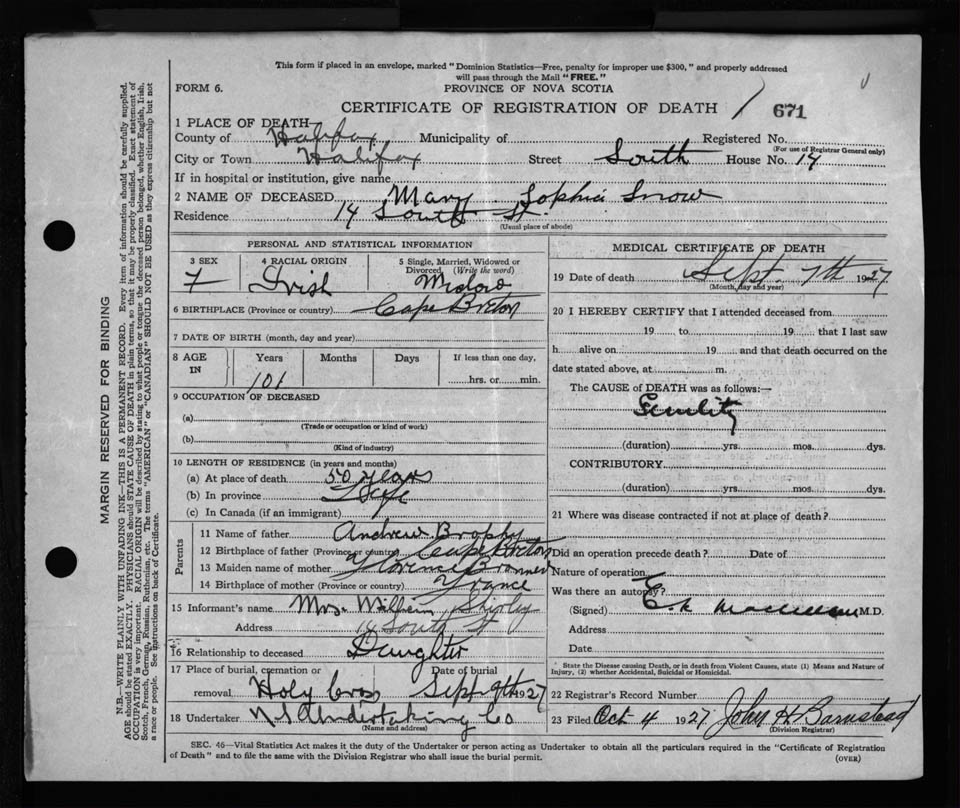 This form if placed in an envelope, marked "Dominion Statistics—Free, penalty for improper use $300," and properly addressed
will pass through the Mail "FREE."
FORM 6.
PROVINCE OF NOVA SCOTIA
CERTIFICATE OF REGISTRATION OF DEATH 671
1 PLACE OF DEATH
County of Halifax Municipality of Registered No.
(For use of Registrar General only)
City or Town Halifax Street South House No. 14
If in hospital or institution, give name
2 NAME OF DECEASED Mary Sophia Snow
Residence 14 South St.
(Usual place of abode)
PERSONAL AND STATISTICAL INFORMATION
3 SEX 4 RACIAL ORIGIN 5 Single, Married, Widowed or
Divorced (Write the word)
F Irish Widow
6 BIRTHPLACE (Province or country) Cape Breton
7 DATE OF BIRTH (month, day and year)
8 AGE IN Years Months Days If less than one day,
101 hrs. or min.
9 OCCUPATION OF DECEASED
(a)
(Trade or occupation or kind of work)
(b)
(Kind of industry)
10 LENGTH OF RESIDENCE (in years and months)
(a) At place of death 50 years
(b) In province Life
(c) In Canada (if an immigrant)
Parents
11 Name of father Andrew Brophy
12 Birthplace of father (Province or country) Cape Breton
13 Maiden name of mother Florence
14 Birthplace of mother (Province or country) France
15 Informant's name Mrs. Shirly
Address 14 South St
16 Relationship to deceased Daughter
17 Place of burial, cremation or Date of burial
removal, Holy Cross Sept 9th 1927
18 Undertaker N S Undertaking Co
(Name and address)
MEDICAL CERTIFICATE OF DEATH
19 Date of death Sept. 7th 1927
(Month, day and year)
20 I HEREBY CERTIFY that I attended deceased from
19 to 19 that I last saw
h alive on 19 and that death occurred on the
date stated above, at m.
The CAUSE of DEATH was as follows:—
Senility
(duration) yrs. mos. dys.
CONTRIBUTORY
(duration) yrs. mos. dys.
21 Where was disease contracted if not at place of death?
Did an operation precede death? Date of
Nature of operation
Was there an autopsy?
(Signed) M.D.
Address
Date
State the Disease causing Death, or in death from Violent Causes, state (1) Means and Nature of
Injury, (2) whether Accidental, Suicidal or Homicidal.
22 Registrar's Record Number
23 Filed Oct 4 1927 John H Barnstead
(Division Registrar)
SEC. 46—Vital Statistics Act makes it the duty of the Undertaker or person acting as Undertaker to obtain all the particulars required in the "Certificate of Registration
of Death" and to file the same with the Division Registrar who shall issue the burial permit.
(OVER)
MARGIN RESERVED FOR BINDING
N.B.—WRITE PLAINLY WITH UNFADING INK—THIS IS A PERMANENT RECORD. Every item of information should be carefully supplied.
AGE should be stated EXACTLY. PHYSICIANS should STATE CAUSE OF DEATH in plain terms, so that it may be properly classified. Exact statement of
OCCUPATION is very important. RACIAL ORIGIN will be described by stating to what people or tongue the deceased person belonged, whether English, Irish,
Scotch, French, German, Russian, Ruthenian, etc. The terms "AMERICAN" or "CANADIAN" SHOULD NOT BE USED as they express citizenship but not
a race or people. See instructions on back of Certificate.